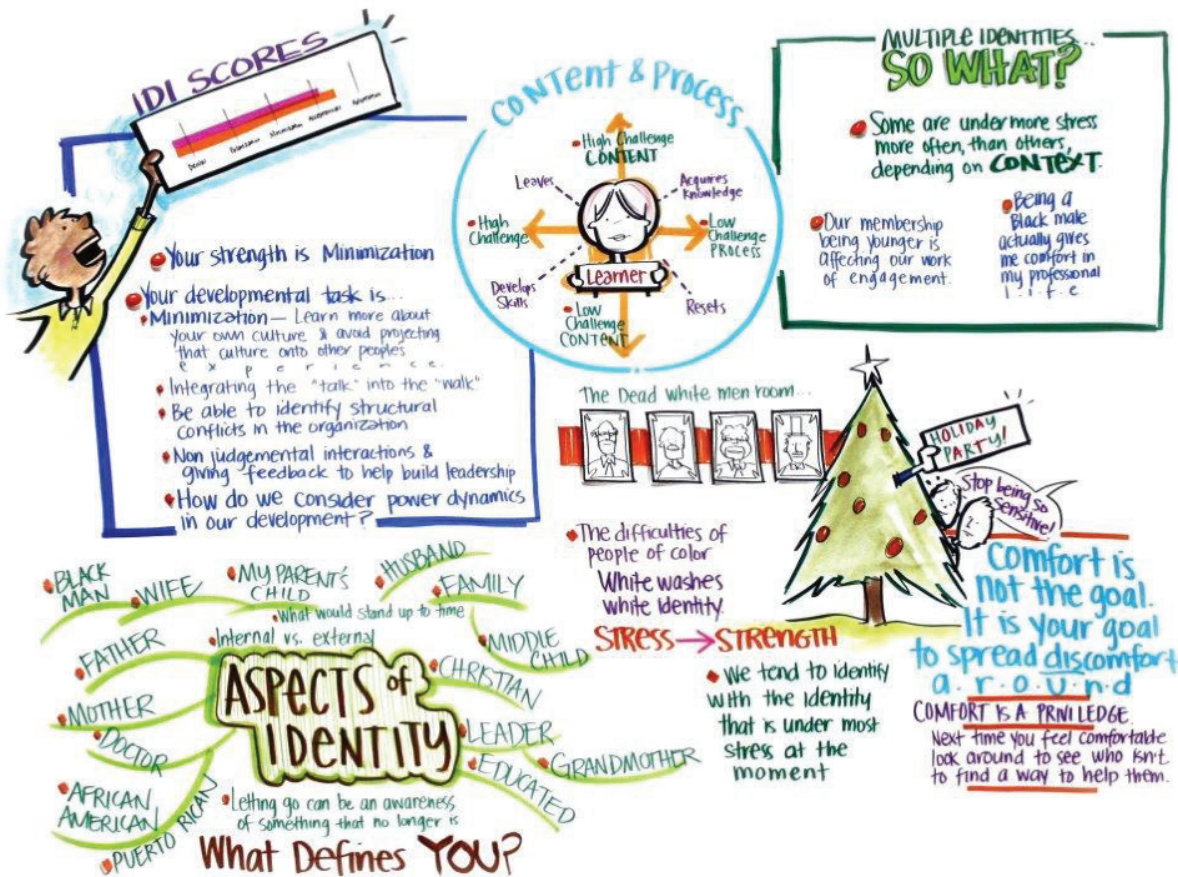 IDI SCORES
Denial
Polarization
Minimization
Acceptance
Adaptation
Your strength is Minimization
Your developmental task is...
Minimization — Learn more about
your own culture & avoid projecting
that culture onto other peoples
e x p e r i e n c e.
Integrating the "talk" into the "walk"
Be able to identify structural
conflicts in the organization
Non judgemental interactions &
giving feedback to help build leadership
How do we consider power dynamics
in our development?
CONTENT & PROCESS
High Challenge
CONTENT
Leaves
Acquires
Knowledge
High
Challenge
Low
Challenge
PROCESS
Learner
Develops
Skills
Resets
Low
Challenge
CONTENT
MULTIPLE IDENTITIES...
SO WHAT?
Some are under more stress
more often, than others,
depending on CONTEXT.
Our membership
being younger is
affecting our work
of engagement.
Being a
Black male
actually gives
me comfort in
my professional
l . i . f . e
The Dead white men room...
HOLIDAY
PARTY!
Stop being so
sensitive!
The difficulties of
people of color
White washes
white identity.
STRESS → STRENGTH
We tend to identify
with the identity
that is under most
stress at the
moment
Comfort is
not the goal.
It is your goal
to spread discomfort
a . r . o . u . n . d
COMFORT IS A PRIVILEDGE.
Next time you feel comfortable
look around to see who isn't
to find a way to help them.
BLACK
MAN
WIFE
MY PARENT'S
CHILD
HUSBAND
FAMILY
What would stand up to time
FATHER
Internal vs. external
MIDDLE
CHILD
CHRISTIAN
ASPECTS of
IDENTITY
MOTHER
DOCTOR
LEADER
GRANDMOTHER
EDUCATED
AFRICAN
AMERICAN
PUERTO RICAN
Letting go can be an awareness
of something that no longer is
What Defines YOU?